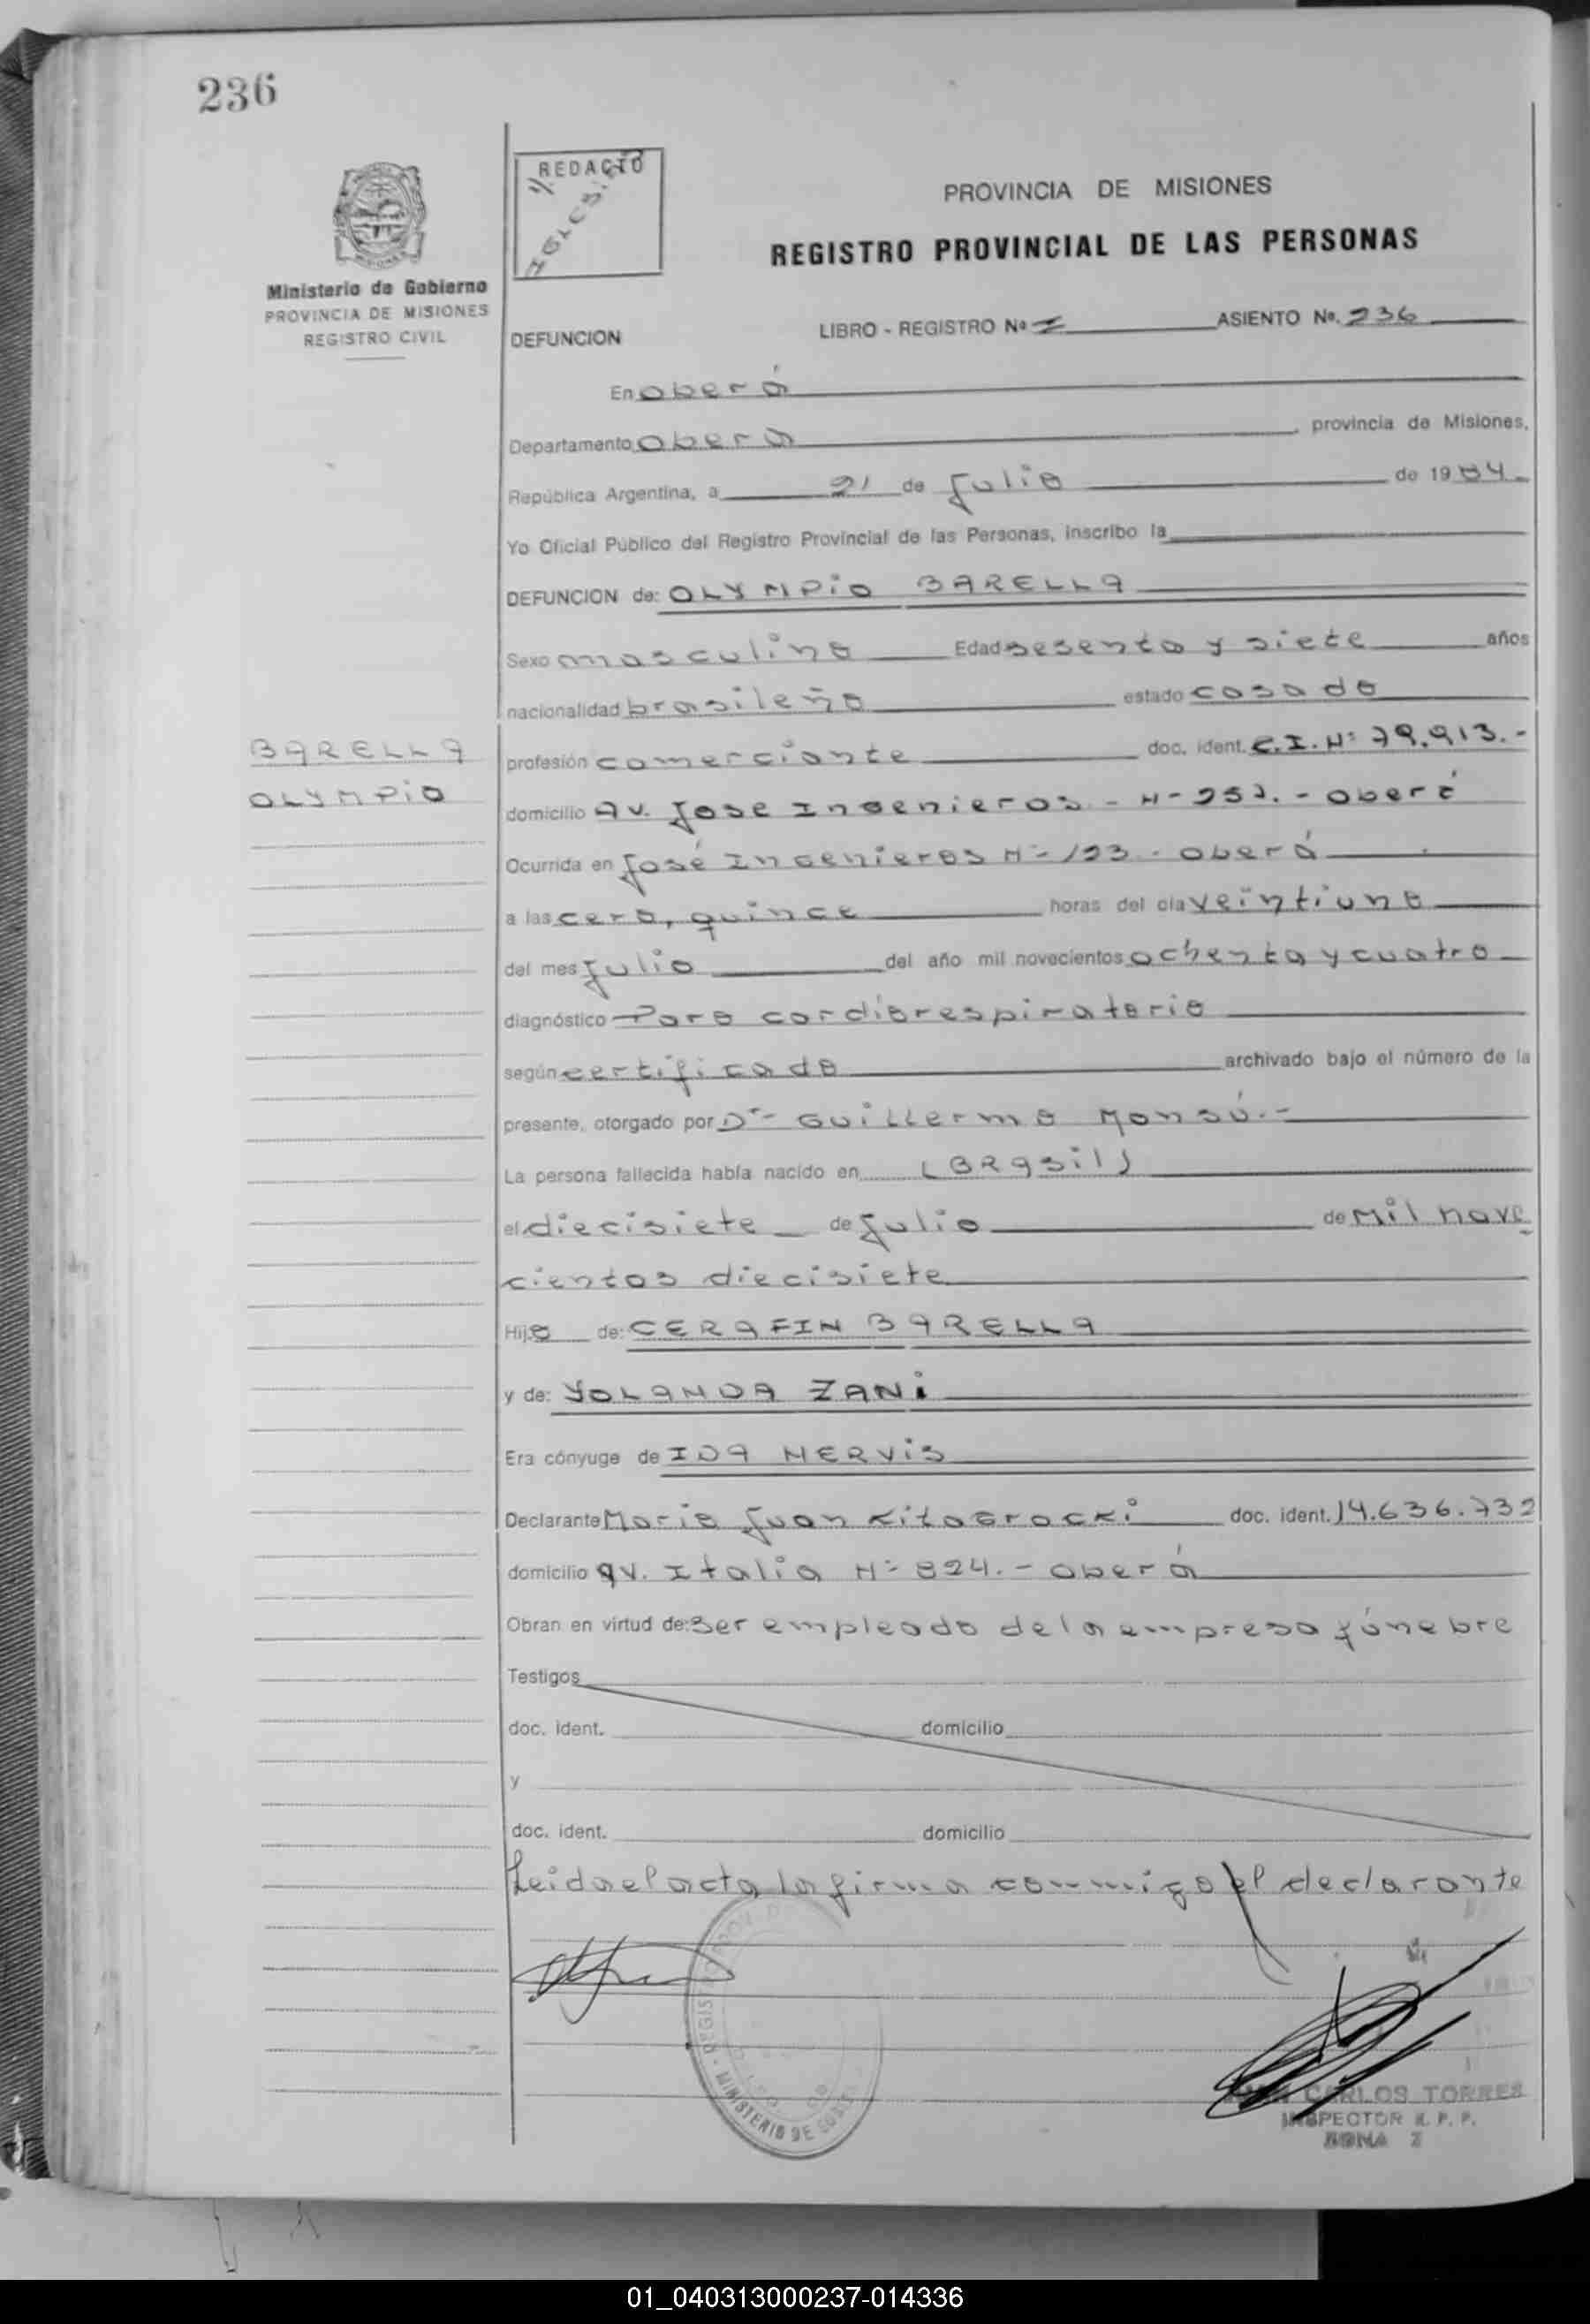 236
REDACTO
PROVINCIA DE MISIONES
REGISTRO PROVINCIAL DE LAS PERSONAS
Ministerio de Gobierno
PROVINCIA DE MISIONES
REGISTRO CIVIL
DEFUNCION LIBRO - REGISTRO Nº I ASIENTO Nº. 236
En Oberá
Departamento Obera, provincia de Misiones,
República Argentina, a 21 de Julio de 1984.-
Yo Oficial Público del Registro Provincial de las Personas, inscribo la
DEFUNCION de: OLYMPIO BARELLA
Sexo masculino Edad sesenta y siete años
nacionalidad brasileño estado casado
BARELLA
OLYMPIO
profesión comerciante doc. ident. C.I. Nº 79.913.-
domicilio AV. Jose Ingenieros - Nº - Oberá
Ocurrida en José Ingenieros Nº 123 - Oberá
a las cero, quince horas del día veintiuno
del mes Julio del año mil novecientos ochenta y cuatro
diagnóstico Paro cardiorespiratorio
según certificado archivado bajo el número de la
presente, otorgado por Dr Guillermo Monsú.-
La persona fallecida había nacido en (BRASil)
el diecisiete de Julio de Mil nove
cientos diecisiete
Hijo de: CERAFIN BARELLA
y de: YOLANDA ZANi
Era cónyuge de IDA NERVis
Declarante Mario Juan Kitogrocki doc. ident. 14.636.732
domicilio AV. Italia Nº 824.- Oberá
Obran en virtud de: Ser empleado de la empresa fúnebre
Testigos
doc. ident. domicilio
y
doc. ident. domicilio
Leida el acta la firma conmigo el declarante
MINISTERIO DE
CARLOS TORRES
INSPECTOR R. P. P.
ZONA 2
01_040313000237-014336